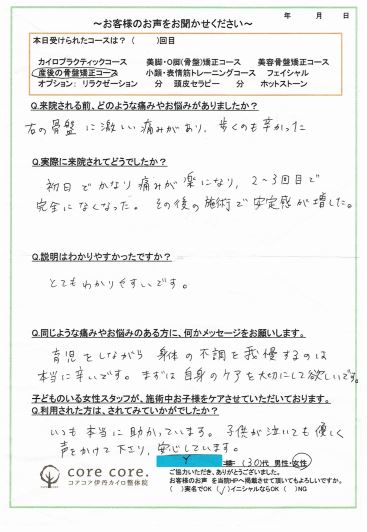 年　月　日
～お客様のお声をお聞かせください～
本日受けられたコースは？（　　）回目
カイロプラクティックコース　美脚・O脚（骨盤）矯正コース　美容骨盤矯正コース
産後の骨盤矯正コース　小顔・表情筋トレーニングコース　フェイシャル
オプション： リラクゼーション　分　頭皮セラピー　分　ホットストーン
Q.来院される前、どのような痛みやお悩みがありましたか？
右の骨盤に激しい痛みがあり、歩くのも辛かった
Q.実際に来院されてどうでしたか？
初日でかなり痛みが楽になり、2～3回目で
完全になくなった。その後の施術で安定感が増した。
Q.説明はわかりやすかったですか？
とてもわかりやすいです。
Q.同じような痛みやお悩みのある方に、何かメッセージをお願いします。
育児をしながら身体の不調を我慢するのは
本当に辛いです。まずは自身のケアを大切にして欲しいです。
子どものいる女性スタッフが、施術中お子様をケアさせていただいております。
Q.利用された方は、されてみていかがでしたか？
いつも本当に助かっています。子供が泣いても優しく
声をかけて下さり、安心しています。
Y （30）代 男性・女性
core core.
コアコア伊丹カイロ整体院
ご協力いただき、ありがとうございました。
お客様の声を当院HPへ掲載させて頂いてもよろしいですか。
（　）実名でOK （✓）イニシャルならOK （　）NG